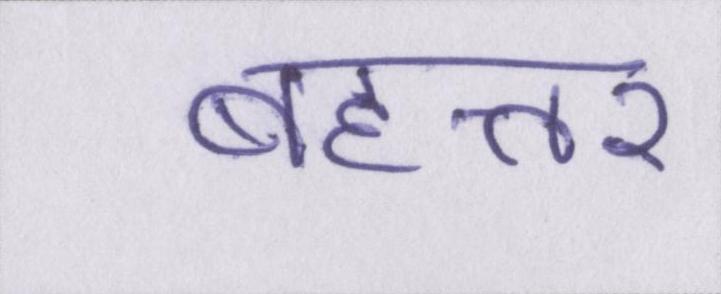 बहत्तर